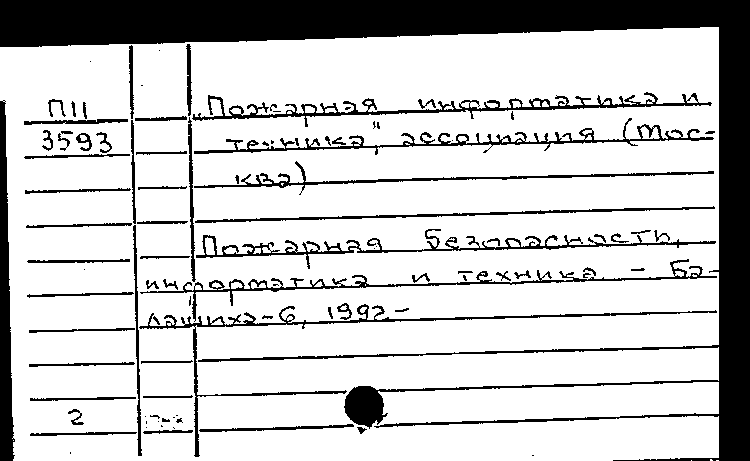 П11
3593
„Пожарная информатика и
техника", ассоциация (Мос-
ква)
Пожарная безопасность,
информатика и техника - Ба-
лашиха-6, 1992-
2